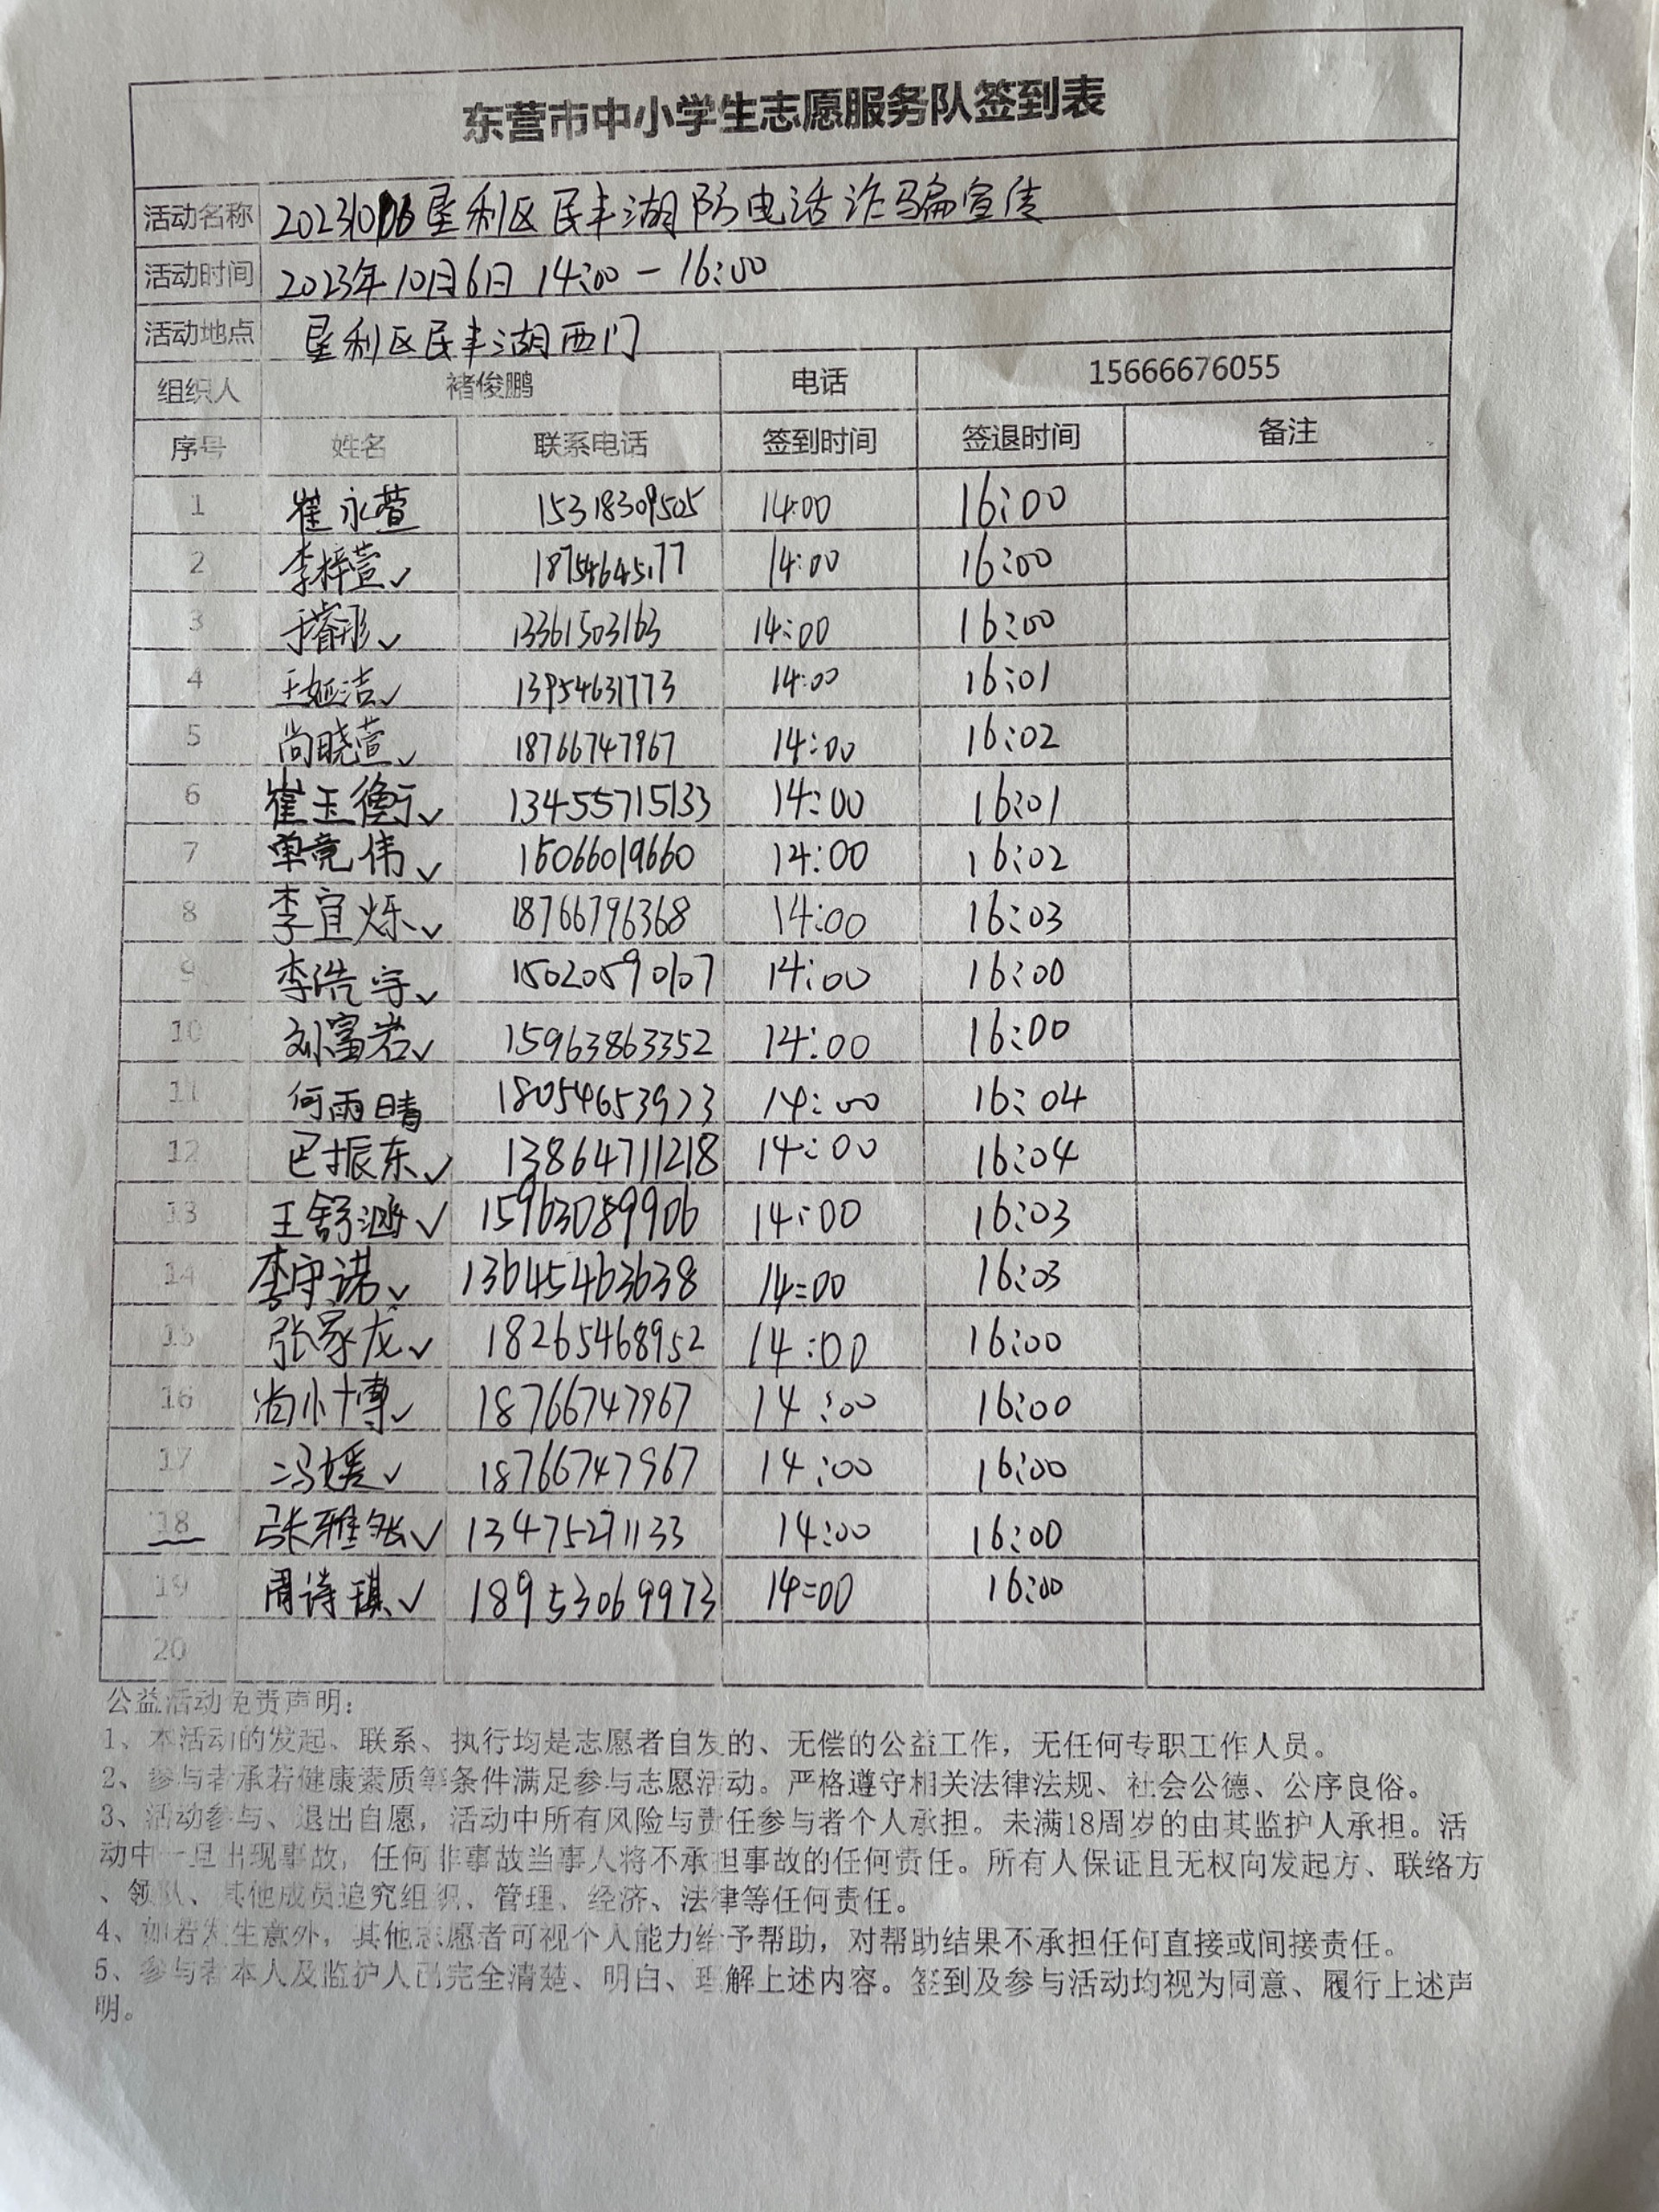 东营市中小学生志愿服务队签到表
活动名称 20231006垦利区民丰湖防电话诈骗宣传
活动时间 2023年10月6日 14:00-16:00
活动地点 垦利区民丰湖西门
组织人 褚俊鹏 电话 15666676055
序号 姓名 联系电话 签到时间 签退时间 备注
1 崔永萱 15318309505 14:00 16:00
2 李梓萱✓ 18754645177 14:00 16:00
3 于睿彤✓ 13361503163 14:00 16:00
4 王娅洁✓ 13954631773 14:00 16:01
5 尚晓萱✓ 18766747967 14:00 16:02
6 崔玉衡✓ 13455715133 14:00 16:01
7 单竞伟✓ 15066019660 14:00 16:02
8 李宜烁✓ 18766796368 14:00 16:03
9 李浩宇✓ 15020590107 14:00 16:00
10 刘富若✓ 15963863352 14:00 16:00
11 何雨晴 18054653923 14:00 16:04
12 巴振东✓ 13864711218 14:00 16:04
13 王舒涵✓ 15963089906 14:00 16:03
14 李守诺✓ 13645463638 14:00 16:03
15 张家龙✓ 18265468952 14:00 16:00
16 尚小博✓ 18766747967 14:00 16:00
17 冯媛✓ 18766747967 14:00 16:00
18 张雅✓ 13475271133 14:00 16:00
19 周诗琪✓ 18953069973 14:00 16:00
20
公益活动免责声明：
1、本活动的发起、联系、执行均是志愿者自发的、无偿的公益工作，无任何专职工作人员。
2、参与者承若健康素质等条件满足参与志愿活动。严格遵守相关法律法规、社会公德、公序良俗。
3、活动参与、退出自愿，活动中所有风险与责任参与者个人承担。未满18周岁的由其监护人承担。活
动中一旦出现事故，任何非事故当事人将不承担事故的任何责任。所有人保证且无权向发起方、联络方
、领队、其他成员追究组织、管理、经济、法律等任何责任。
4、如若发生意外，其他志愿者可视个人能力给予帮助，对帮助结果不承担任何直接或间接责任。
5、参与者本人及监护人已完全清楚、明白、理解上述内容。签到及参与活动均视为同意、履行上述声
明。